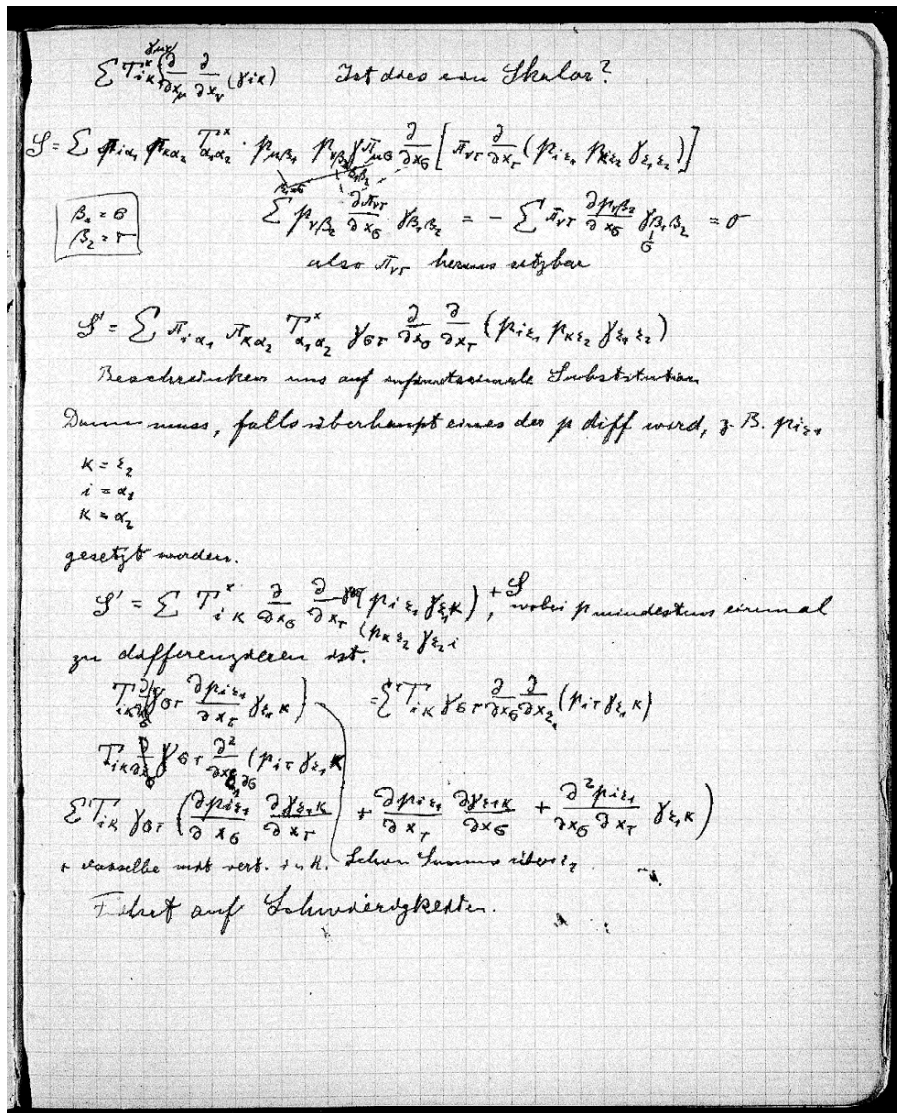 ∑ T^x_{iκ} γ_{μν} ∂/∂x_μ ∂/∂x_ν (γ_{iκ}) Ist dies ein Skalar?
S = ∑ p_{iα₁} p_{κα₂} T^x_{α₁α₂} · p_{μβ₁} p_{νβ₂} γ_{β₁β₂} π_{μσ} ∂/∂x_σ [π_{ντ} ∂/∂x_τ (p_{iε₁} p_{κε₂} γ_{ε₁ε₂})]
β₁ = σ
β₂ = τ
∑ p_{νβ₂} ∂π_{ντ}/∂x_σ γ_{β₁β₂} = − ∑ π_{ντ} ∂p_{νβ₂}/∂x_σ γ_{β₁β₂} = 0
σ
also π_{ντ} heraus setzbar
S' = ∑ π_{iα₁} π_{κα₂} T^x_{α₁α₂} γ_{στ} ∂/∂x_σ ∂/∂x_τ (p_{iε₁} p_{κε₂} γ_{ε₁ε₂})
Beschränken uns auf infinitesimale Substitution
Dann muss, falls überhaupt eines der p diff wird, z. B. p_{iε₁}
κ = ε₂
i = α₁
κ = α₂
gesetzt werden.
S' = ∑ T^x_{iκ} ∂/∂x_σ ∂/∂x_τ (p_{iε₁} γ_{ε₁κ}) + S, wobei p mindestens einmal
(p_{κε₂} γ_{ε₂i}
zu differenzieren ist.
T_{iκ} γ_{στ} ∂p_{iε₁}/∂x_τ γ_{ε₁κ}) = ∑ T_{iκ} γ_{στ} ∂/∂x_σ ∂/∂x_τ (p_{iτ} γ_{ε₁κ})
T_{iκ} γ_{στ} ∂²/∂x_σ (p_{iτ} γ_{ε₁κ}
∑ T_{iκ} γ_{στ} (∂p_{iε₁}/∂x_σ ∂γ_{ε₁κ}/∂x_τ + ∂p_{iε₁}/∂x_τ ∂γ_{ε₁κ}/∂x_σ + ∂²p_{iε₁}/∂x_σ∂x_τ γ_{ε₁κ})
+ dasselbe mit vert. i u κ. Schon Summe über
Führt auf Schwierigkeiten.